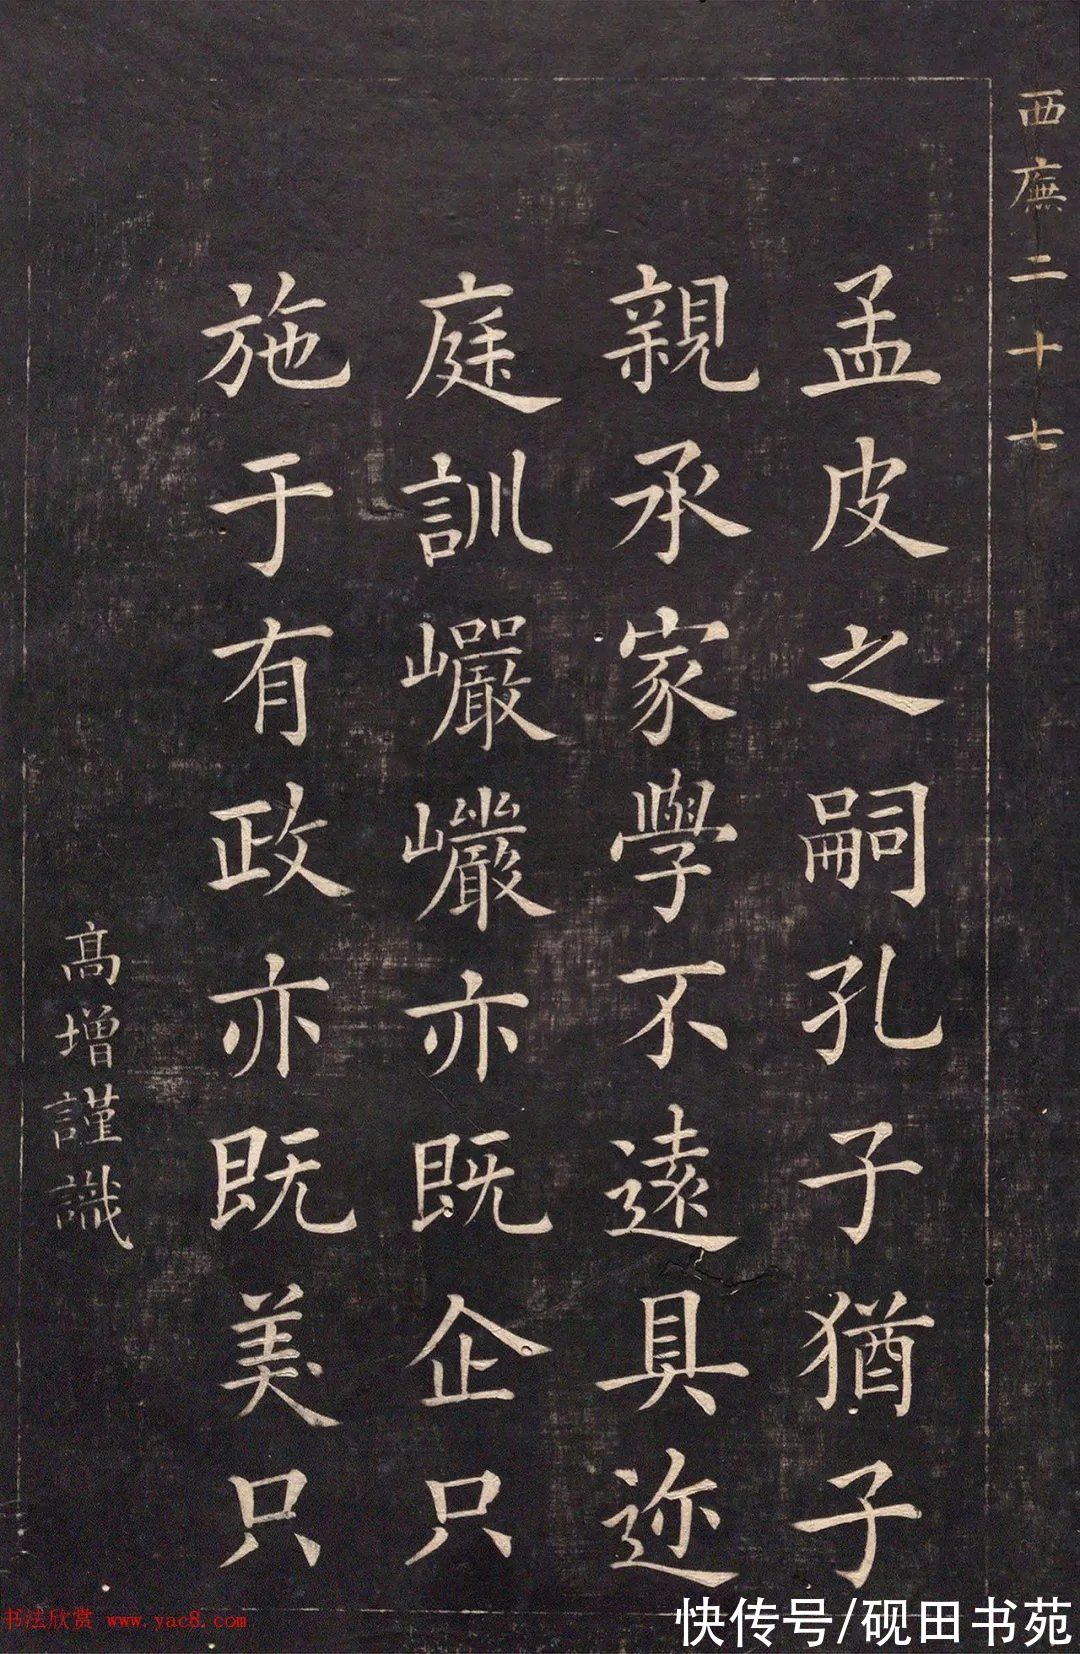 西廡二十七
孟皮之嗣孔子猶子
親承家學不遠具迩
庭訓巗巗亦既企只
施于有政亦既美只
高增謹識
书法欣赏 www.yac8.com
快传号/砚田书苑